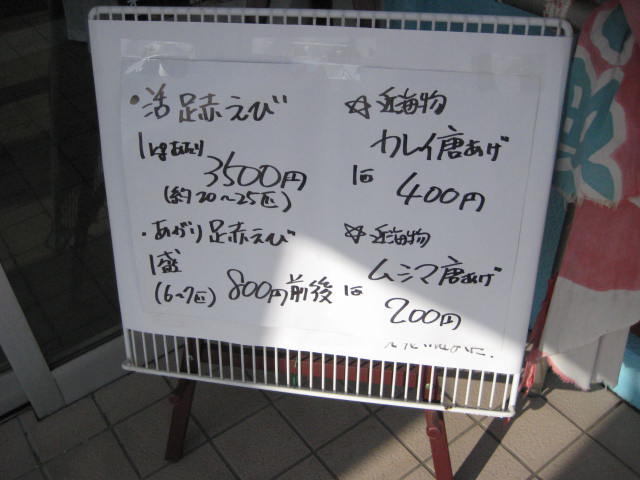 ・活 足赤えび
1kgあたり
3500円
(約20〜25匹)
・あがり足赤えび
1盛
(6〜7匹) 800円前後
☆近海物
カレイ唐あげ
1コ
400円
☆近海物
ムシマ唐あげ
1コ
200円